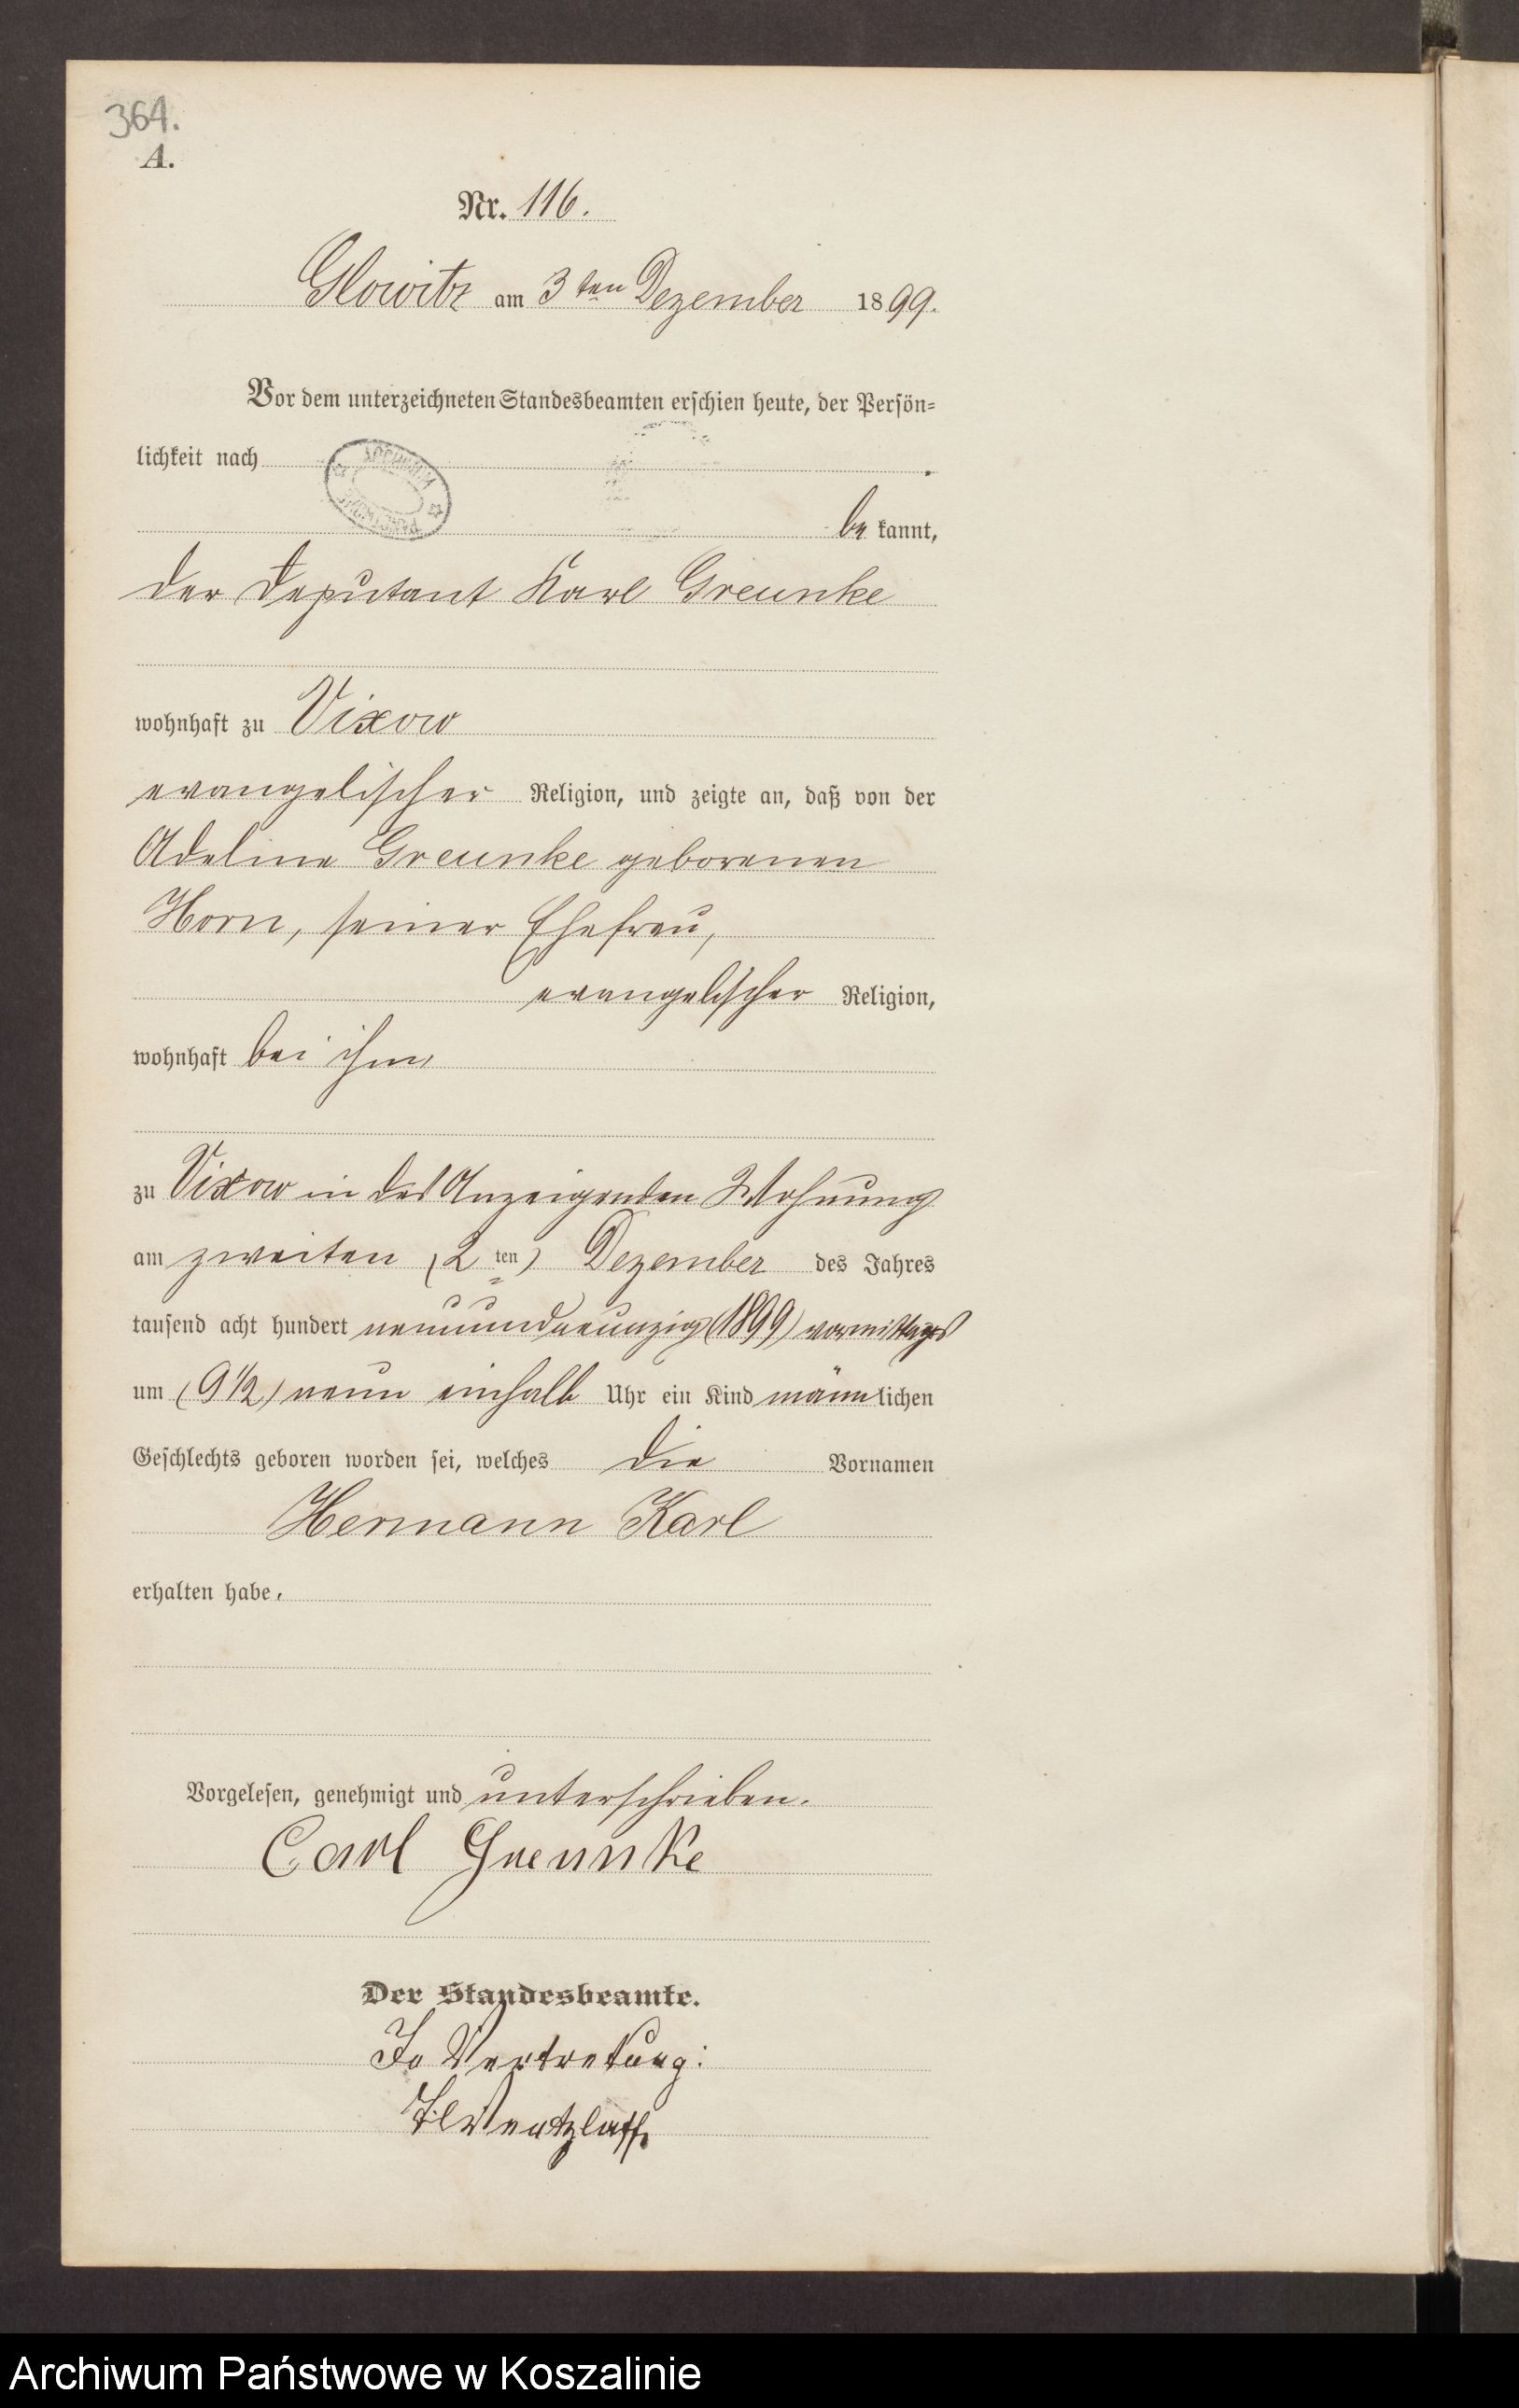 364.
A.
Nr. 116.
Glowitz am 3ten Dezember 1899.
Vor dem unterzeichneten Standesbeamten erschien heute, der Persön=
lichkeit nach
be kannt,
der Deputant Karl Greunke
wohnhaft zu Vixow
evangelischer Religion, und zeigte an, daß von der
Adeline Greunke geborenen
Horn, seiner Ehefrau,
evangelischer Religion,
wohnhaft bei ihm
zu Vixow in des Anzeigenden Wohnung
am zweiten (2 ten) Dezember des Jahres
tausend acht hundert neunundneunzig (1899) vormittags
um (9 1/2) neun einhalb Uhr ein Kind männlichen
Geschlechts geboren worden sei, welches die Vornamen
Hermann Karl
erhalten habe.
Vorgelesen, genehmigt und unterschrieben.
Carl Greunke
Der Standesbeamte.
In Vertretung:
Wentzlaff
Archiwum Państwowe w Koszalinie